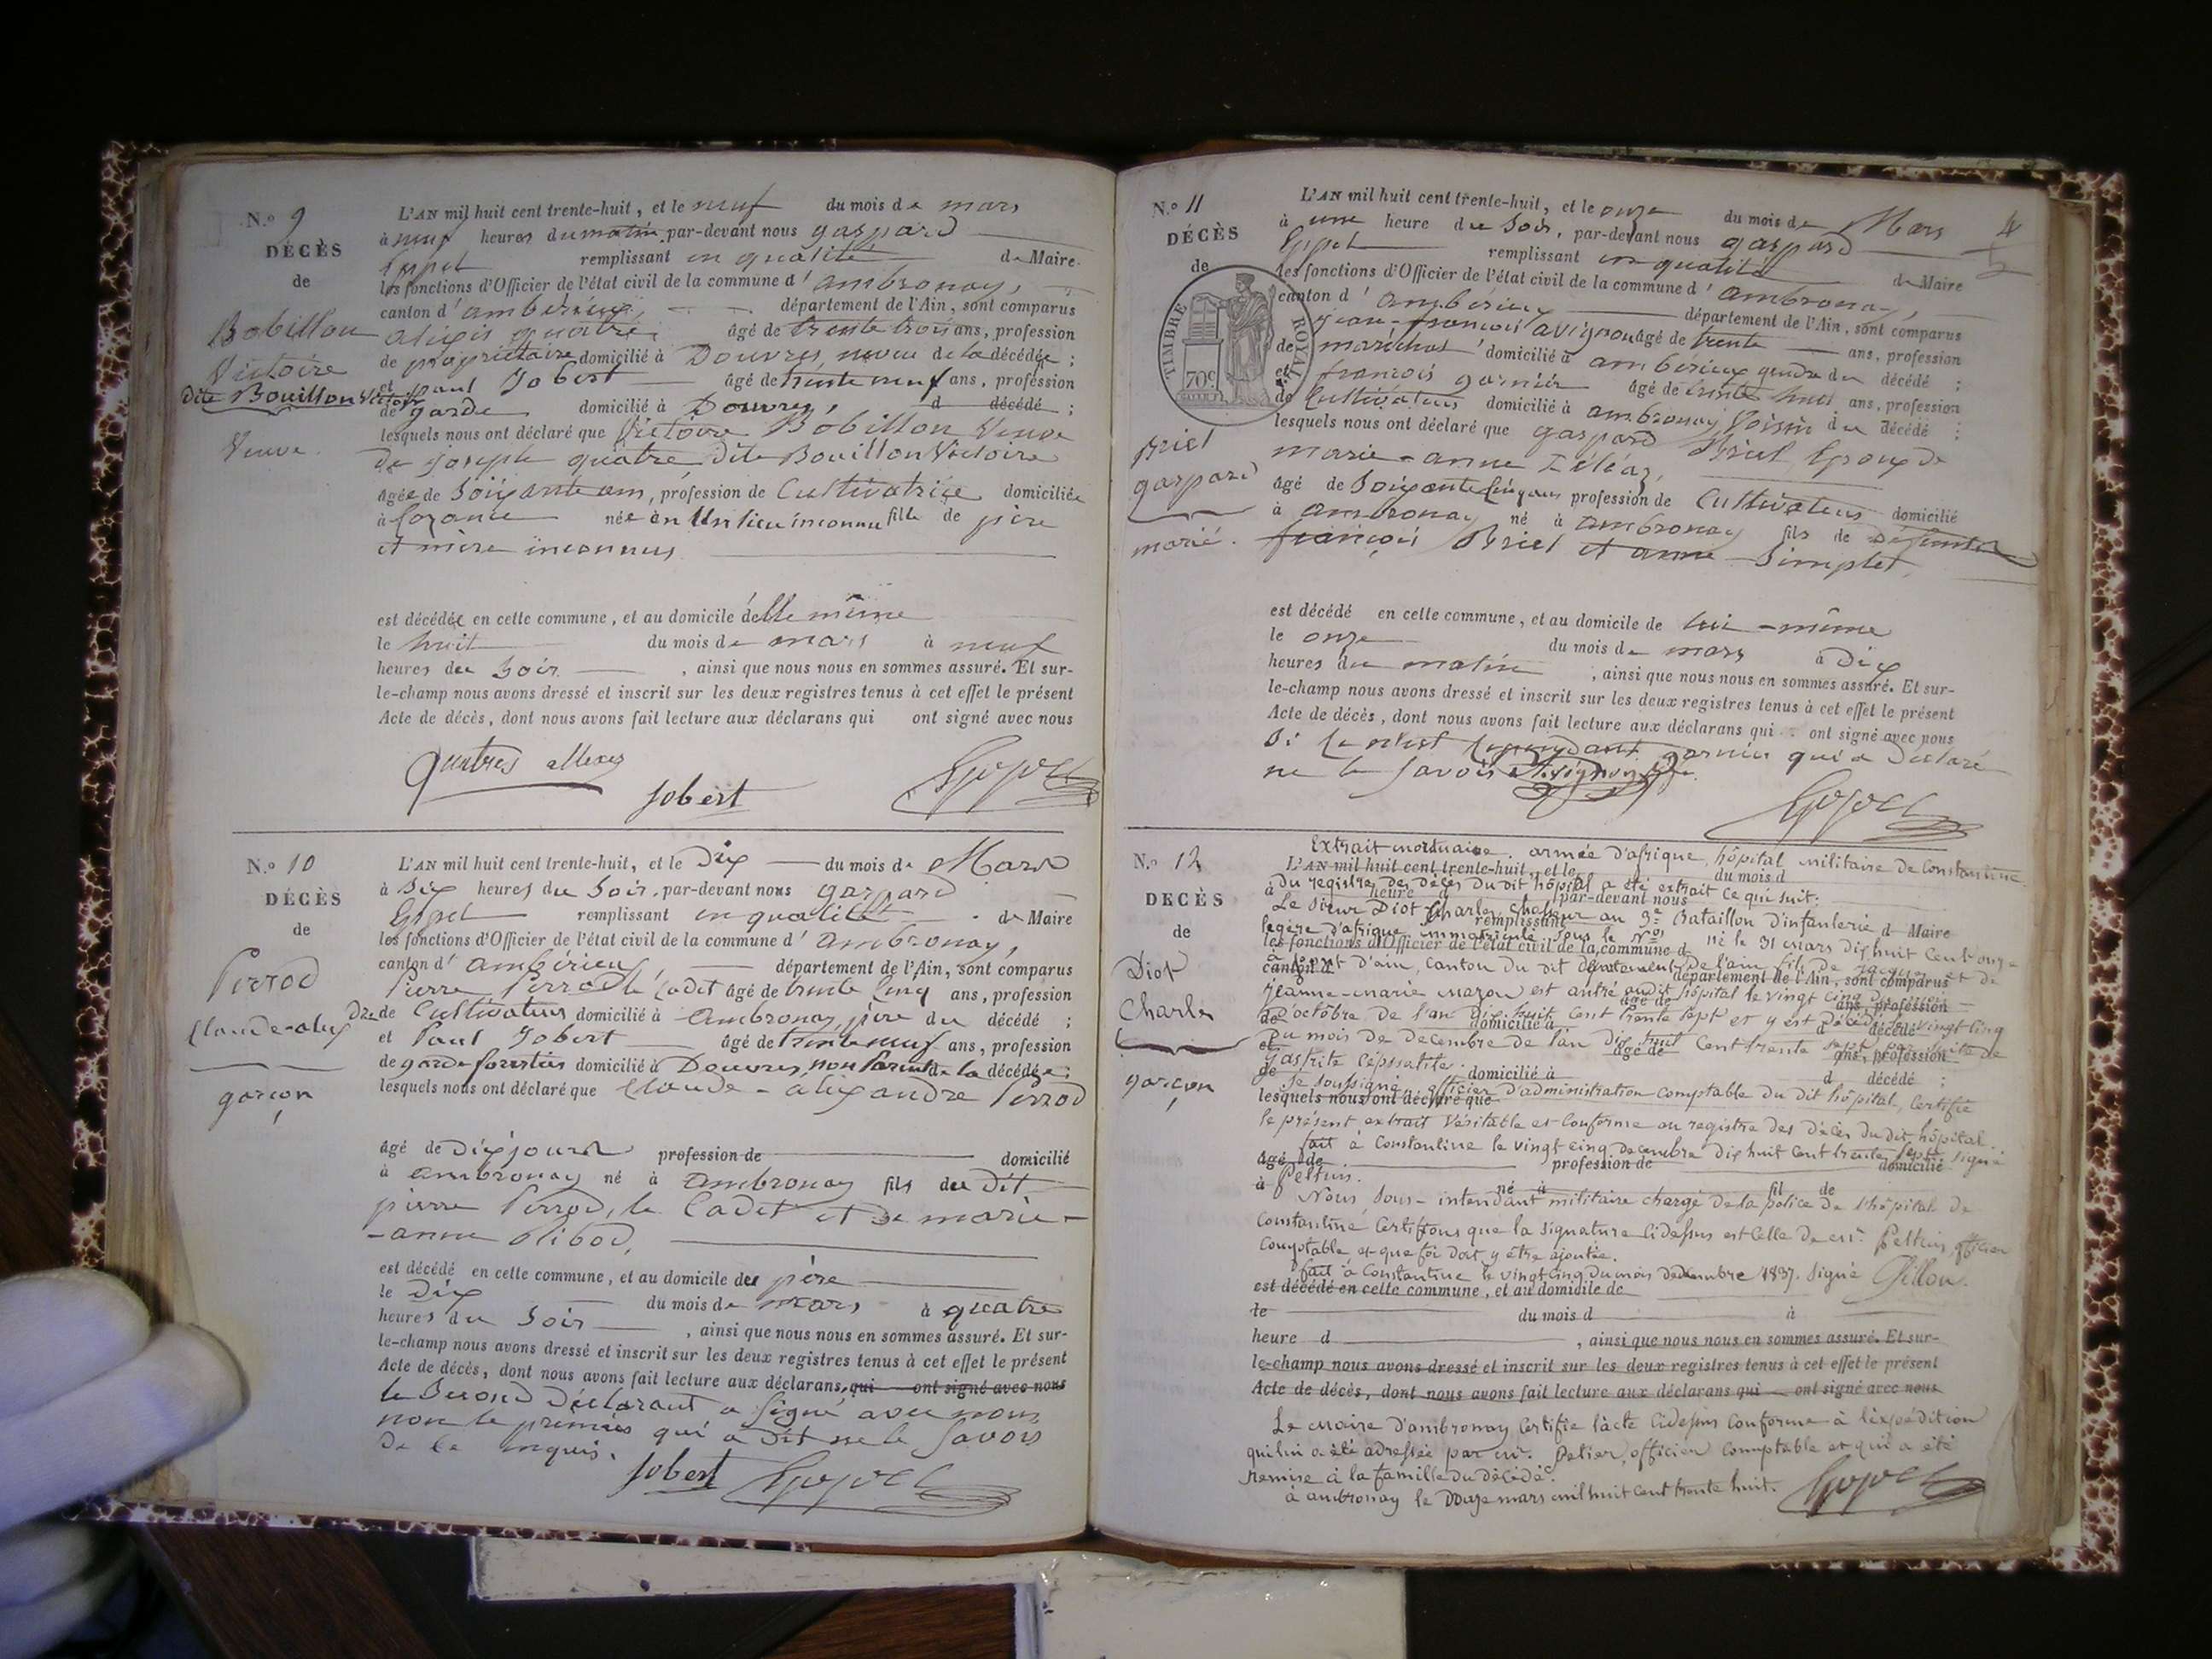 N.º 9
DÉCÈS
de
Bobillon
Victoire
dite Bouillon Victoire
Veuve.
L'AN mil huit cent trente-huit, et le neuf du mois de mars
à neuf heures du matin, par-devant nous gaspard
remplissant en qualité de Maire
les fonctions d'Officier de l'état civil de la commune d'ambronay,
canton d'ambérieux, département de l'Ain, sont comparus
alexis quatre, âgé de trente trois ans, profession
de propriétaire domicilié à Douvres, neveu de la décédée ;
et paul Jobert âgé de trente neuf ans, profession
de garde domicilié à Douvres, d décédé ;
lesquels nous ont déclaré que Victoire Bobillon Veuve
de Joseph quatre dite Bouillon Victoire
âgée de Soixante ans, profession de Cultivatrice domiciliée
à née en Un lieu inconnu fille de père
et mère inconnus
est décédée en cette commune, et au domicile delle même
le huit du mois de mars à neuf
heures du Soir, ainsi que nous nous en sommes assuré. Et sur-
le-champ nous avons dressé et inscrit sur les deux registres tenus à cet effet le présent
Acte de décès, dont nous avons fait lecture aux déclarans qui ont signé avec nous
Quatres allexis
Jobert
N.º 10
DÉCÈS
de
Perrod
Claude-alexandre
garçon
L'AN mil huit cent trente-huit, et le Dix du mois de Mars
à Six heures du Soir, par-devant nous gaspard
remplissant en qualité de Maire
les fonctions d'Officier de l'état civil de la commune d'ambronay,
canton d'ambérieux, département de l'Ain, sont comparus
Pierre Perrod le Cadet âgé de trente Cinq ans, profession
de Cultivateur domicilié à Ambronay, père du décédé ;
et Paul Jobert âgé de trente neuf ans, profession
de garde forestier domicilié à Douvres, non Parent de la décédée ;
lesquels nous ont déclaré que Claude-alexandre Perrod
âgé de Dix jours profession de domicilié
à ambronay né à Ambronay fils du dit
pierre Perrod, le Cadet et de marie-
-anne
est décédé en cette commune, et au domicile de père
le Dix du mois de mars à quatre
heures du Soir, ainsi que nous nous en sommes assuré. Et sur-
le-champ nous avons dressé et inscrit sur les deux registres tenus à cet effet le présent
Acte de décès, dont nous avons fait lecture aux déclarans, qui ont signé avec nous
le Second Déclarant a Signé avec nous
non le premier qui a dit ne le Savoir
de ce enquis.
Jobert
N.º 11
DÉCÈS
de
TIMBRE ROYAL
70c
Briel
gaspard
marié.
L'AN mil huit cent trente-huit, et le onze du mois de Mars
à une heure du Soir, par-devant nous gaspard
remplissant en qualité de Maire
les fonctions d'Officier de l'état civil de la commune d'ambronay,
canton d'ambérieux département de l'Ain, sont comparus
jean-françois avignon âgé de trente ans, profession
de maréchal domicilié à ambérieux gendre du décédé ;
et françois garnier âgé de trente huit ans, profession
de Cultivateur domicilié à ambronay Voisin du décédé ;
lesquels nous ont déclaré que gaspard Briel Epoux de
marie-anne
âgé de Soixante Cinq ans profession de Cultivateur domicilié
à ambronay né à ambronay fils de Défunts
françois Briel et anne Simplet,
est décédé en cette commune, et au domicile de lui-même
le onze du mois de mars à Dix
heures du matin, ainsi que nous nous en sommes assuré. Et sur-
le-champ nous avons dressé et inscrit sur les deux registres tenus à cet effet le présent
Acte de décès, dont nous avons fait lecture aux déclarans qui ont signé avec nous
Si Ce n'est Cependant garnier qui a Déclaré
ne le Savoir Avignon
N.º 12
DÉCÈS
de
Diot
Charles
garçon
Extrait mortuaire, armée d'afrique, hôpital militaire de Constantine.
L'AN mil huit cent trente-huit, et le du mois d
Du registre des décès du dit hôpital a été extrait ce qui suit:
à heure d par-devant nous
Le Sieur Diot Charles, Chasseur au 3e Bataillon d'infanterie
remplissant d Maire
légère d'afrique immatriculé sous le Nº né le 31 mars dix huit cent onze
les fonctions d'Officier de l'état civil de la commune d
à pont d'ain, canton du dit département de l'ain fils de et de
canton d département de l'Ain, sont comparus
Jeanne-marie est entré audit hôpital le vingt cinq
âgé de ans, profession
d'octobre de l'an dix huit cent trente sept et y est décédé le vingt cinq
de domicilié à d décédé
Du mois de decembre de l'an dix huit cent trente sept par suite de
et âgé de ans, profession
gastrite
de domicilié à d décédé ;
Je soussigné, officier d'administration comptable du dit hôpital, certifie
lesquels nous ont déclaré que
le présent extrait véritable et conforme au registre des décès du dit hôpital.
fait à Constantine le vingt cinq decembre dix huit cent trente sept signé
âgé de profession de domicilié
à Peltier.
né à fil de
Nous, Sous-intendant militaire chargé de la police de l'hôpital de
Constantine Certifions que la signature cidessus est celle de mr. officier
Comptable et que foi doit y être ajoutée.
fait à Constantine le vingt cinq du mois decembre 1837. Signé
est décédé en cette commune, et au domicile de
le du mois d à
heure d , ainsi que nous nous en sommes assuré. Et sur-
le-champ nous avons dressé et inscrit sur les deux registres tenus à cet effet le présent
Acte de décès, dont nous avons fait lecture aux déclarans qui ont signé avec nous
Le maire d'ambronay Certifie l'acte cidessus conforme à l'expédition
qui lui a été adressée par mr. officier comptable et qui a été
remise à la famille du décédé.
à ambronay le Douze mars mil huit cent trente huit.